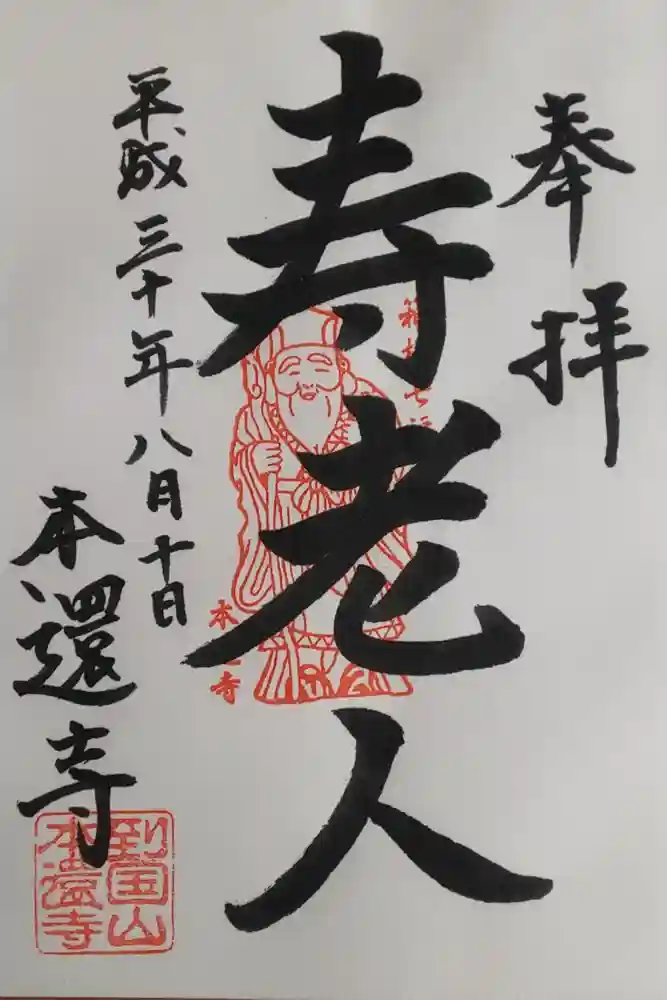 奉拝
寿老人
平成三十年八月十日
本還寺
本還寺
到国山
本還寺